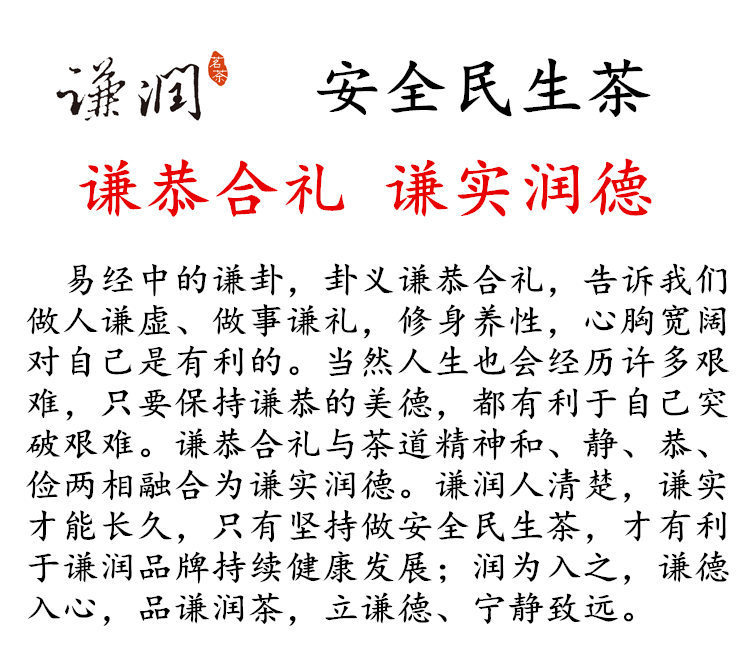 谦润 茗茶 安全民生茶
谦恭合礼 谦实润德
易经中的谦卦，卦义谦恭合礼，告诉我们
做人谦虚、做事谦礼，修身养性，心胸宽阔
对自己是有利的。当然人生也会经历许多艰
难，只要保持谦恭的美德，都有利于自己突
破艰难。谦恭合礼与茶道精神和、静、恭、
俭两相融合为谦实润德。谦润人清楚，谦实
才能长久，只有坚持做安全民生茶，才有利
于谦润品牌持续健康发展；润为入之，谦德
入心，品谦润茶，立谦德、宁静致远。